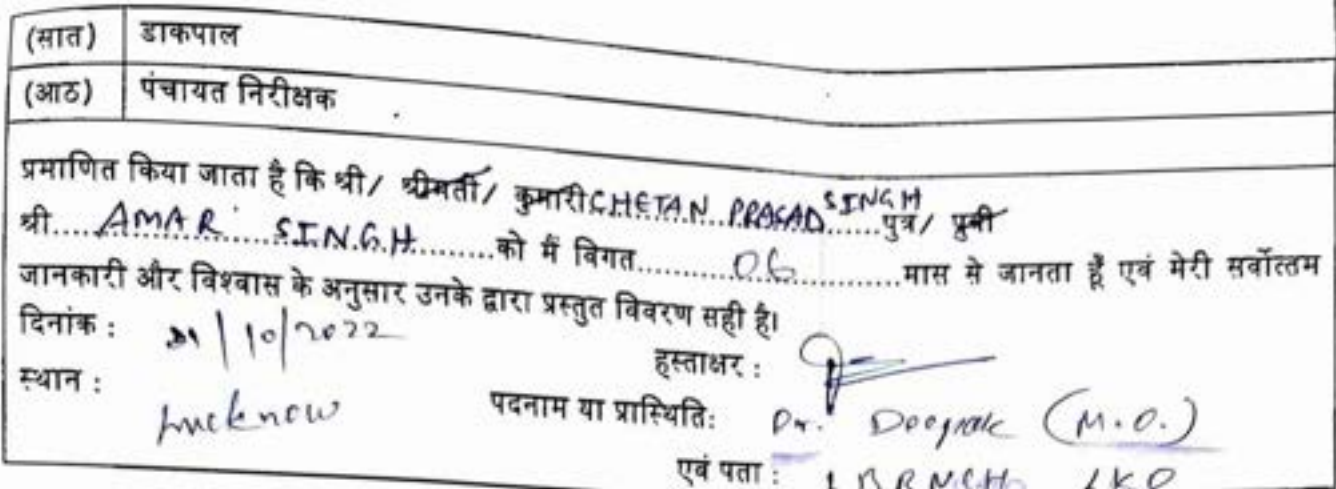 (सात) डाकपाल
(आठ) पंचायत निरीक्षक
प्रमाणित किया जाता है कि श्री/ श्रीमती/ कुमारी CHETAN PRASAD SINGH पुत्र/ पुत्री
श्री.... AMAR SINGH .........को मैं विगत............06............मास से जानता हूँ एवं मेरी सर्वोत्तम
जानकारी और विश्वास के अनुसार उनके द्वारा प्रस्तुत विवरण सही है।
दिनांक : /10/2022
हस्ताक्षर :
स्थान : Lucknow
पदनाम या प्रास्थिति: Dr. Deepak (M.O.)
एवं पता : LBRNCH LKO